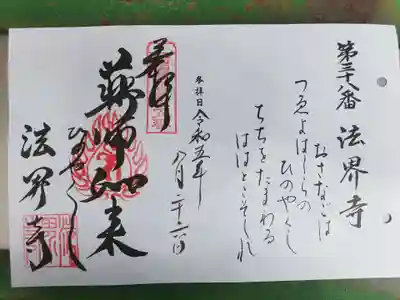 第三十八番 法界寺
おさなごは
つゑよはしらの
ひのやくし
ちちをたまわる
ははとこそしれ
参拝日 令和五年
八月二十六日
奉拝
藥師如来
ひのやくし
法界寺